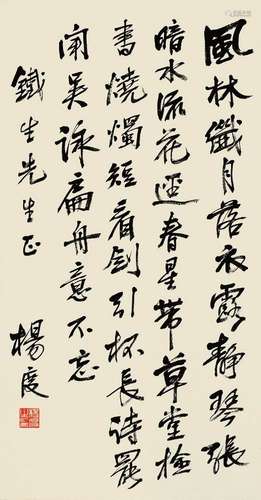 風林纖月落衣露靜琴張
暗水流花逕春星帶草堂檢
書燒燭短看劍引杯長詩罷
聞吳詠扁舟意不忘
鐵生先生正
楊度